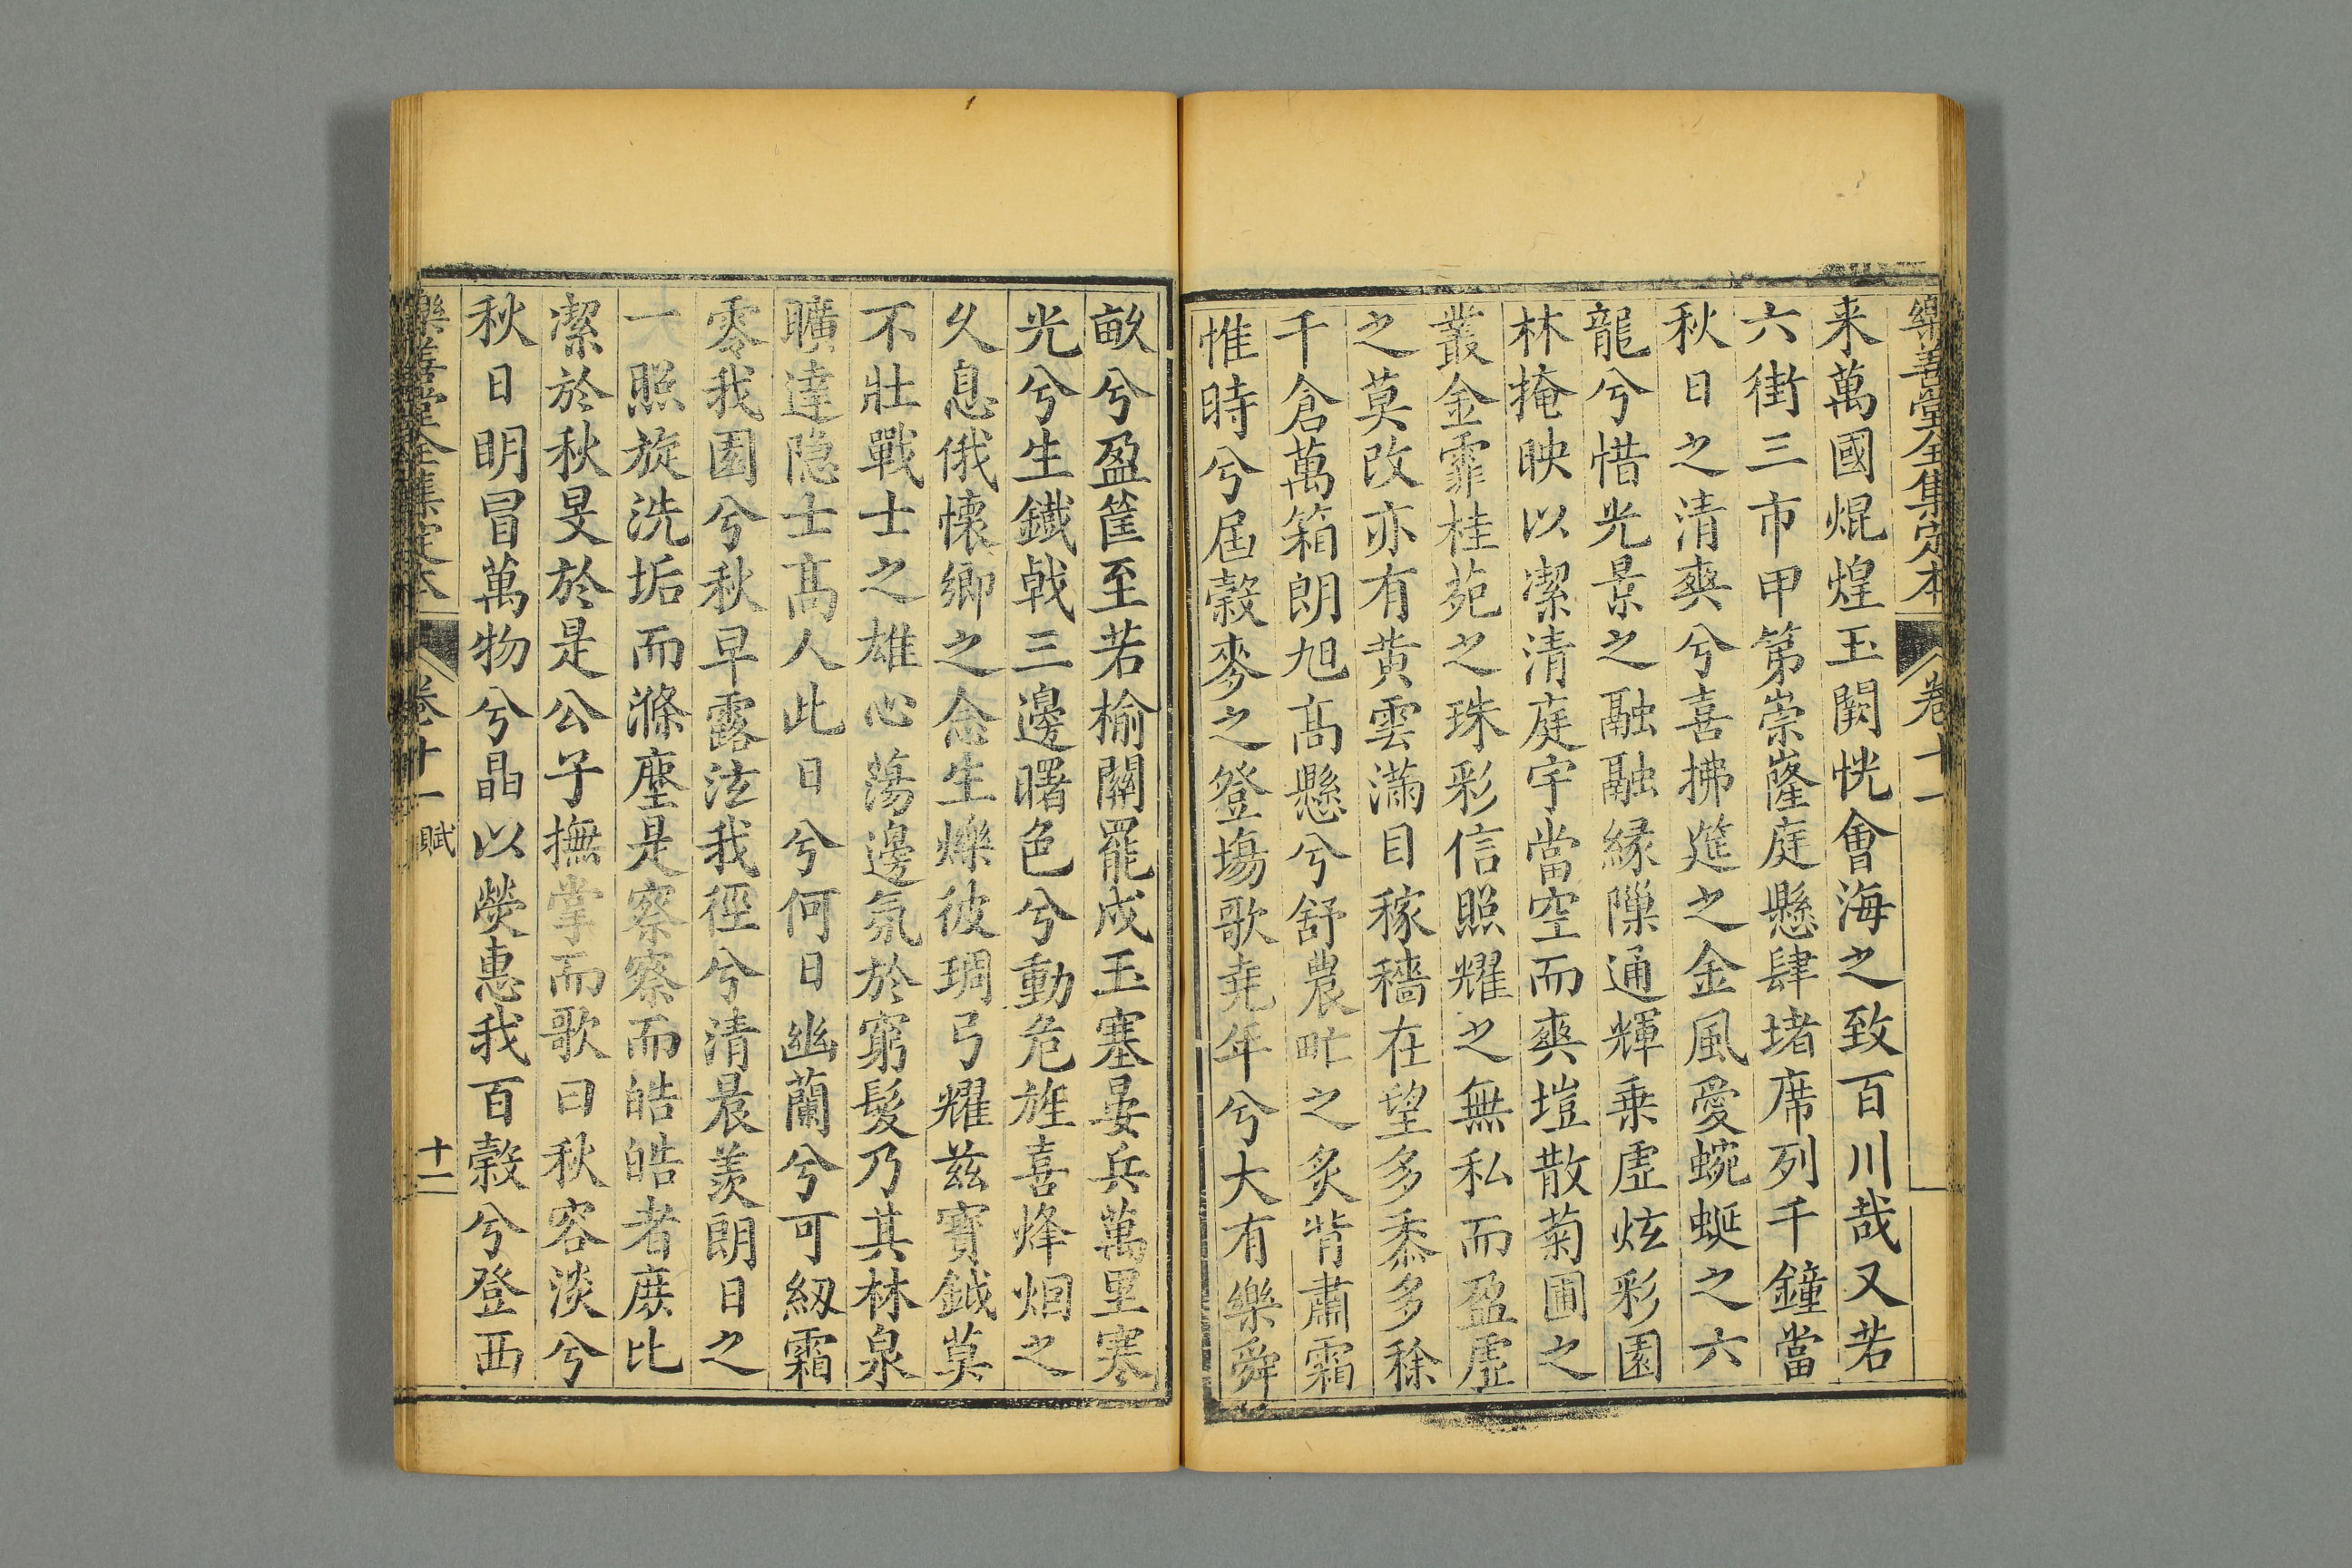 樂善堂全集定本 卷十一
来萬國焜煌玉闕恍會海之致百川哉又若
六街三市甲第崇隆庭懸肆堵席列千鐘當
秋日之清爽兮喜拂筵之金風愛蜿蜒之六
龍兮惜光景之融融緣隟通輝乗虛炫彩園
林掩映以潔清庭宇當空而爽塏散菊圃之
叢金霏桂苑之珠彩信照耀之無私而盈虛
之莫改亦有黄雲滿目稼穡在望多黍多稌
千倉萬箱朗旭髙懸兮舒農畝之炙背肅霜
惟時兮屆穀麥之登塲歌堯年兮大有樂舜
畝兮盈筐至若榆關罷戍玉塞晏兵萬里寒
光兮生鐵戟三邊曙色兮動危旌喜烽烟之
久息俄懷鄉之念生爍彼琱弓耀茲寳鉞莫
不壯戰士之雄心蕩邊氛於窮髮乃其林泉
曠達隠士髙人此日兮何日幽蘭兮可紉霜
零我園兮秋早露泫我徑兮清晨羨朗日之
一照旋洗垢而滌塵是察察而皓皓者庶比
潔於秋旻於是公子撫掌而歌曰秋容淡兮
秋日明冒萬物兮晶以熒惠我百榖兮登西
樂善堂全集定本 卷十一 賦 十二